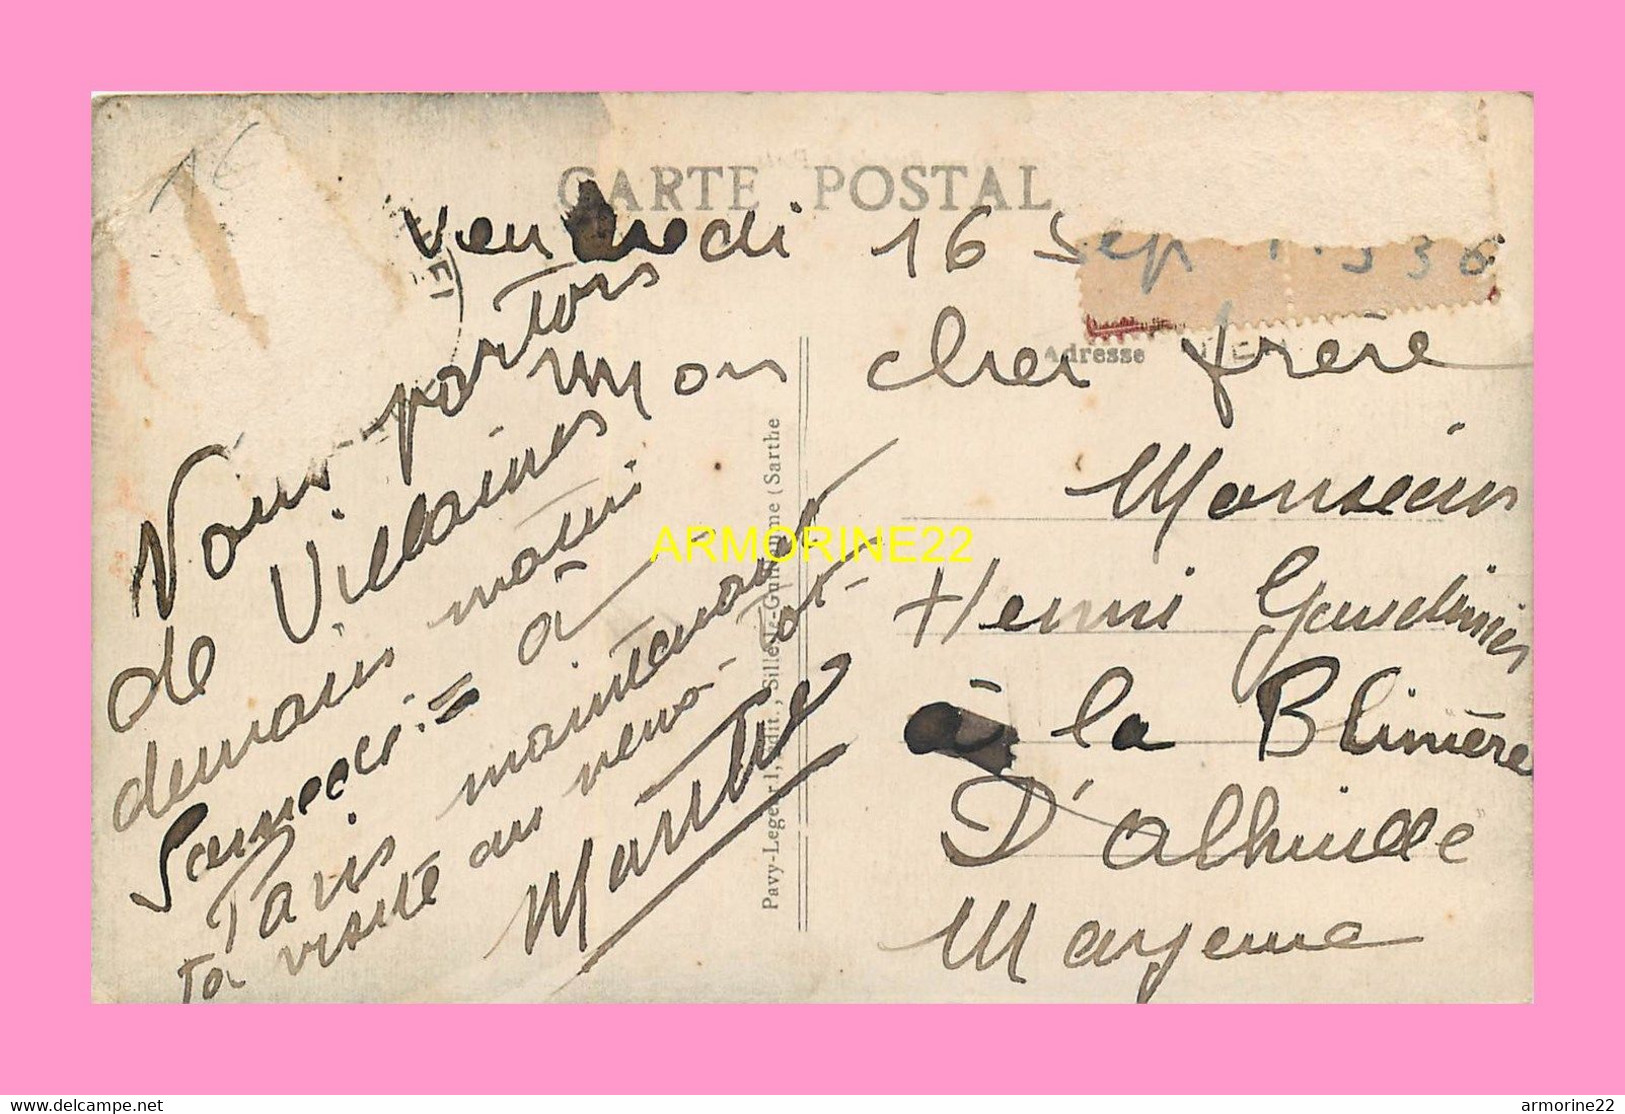 16
CARTE POSTAL
Vendredi 16 Sept. 1936
Mon cher frère
Adresse
Nous partons
de Villaines
demain matin
Samedi = à
Paris maintenant
ta visite au
Marthe
Pavy-Leger, 1, Edit., Sillé-le-Guillaume (Sarthe
Monsieur
Henri Gaudinier
à la Blinière
D'alhuille
Mayenne
ARMORINE22
https://www.delcampe.net
armorine22